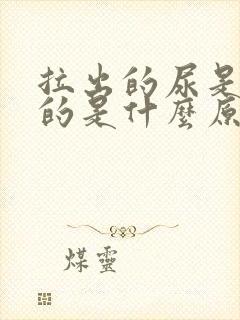 拉出的尿是
的是什麼原
煤靈